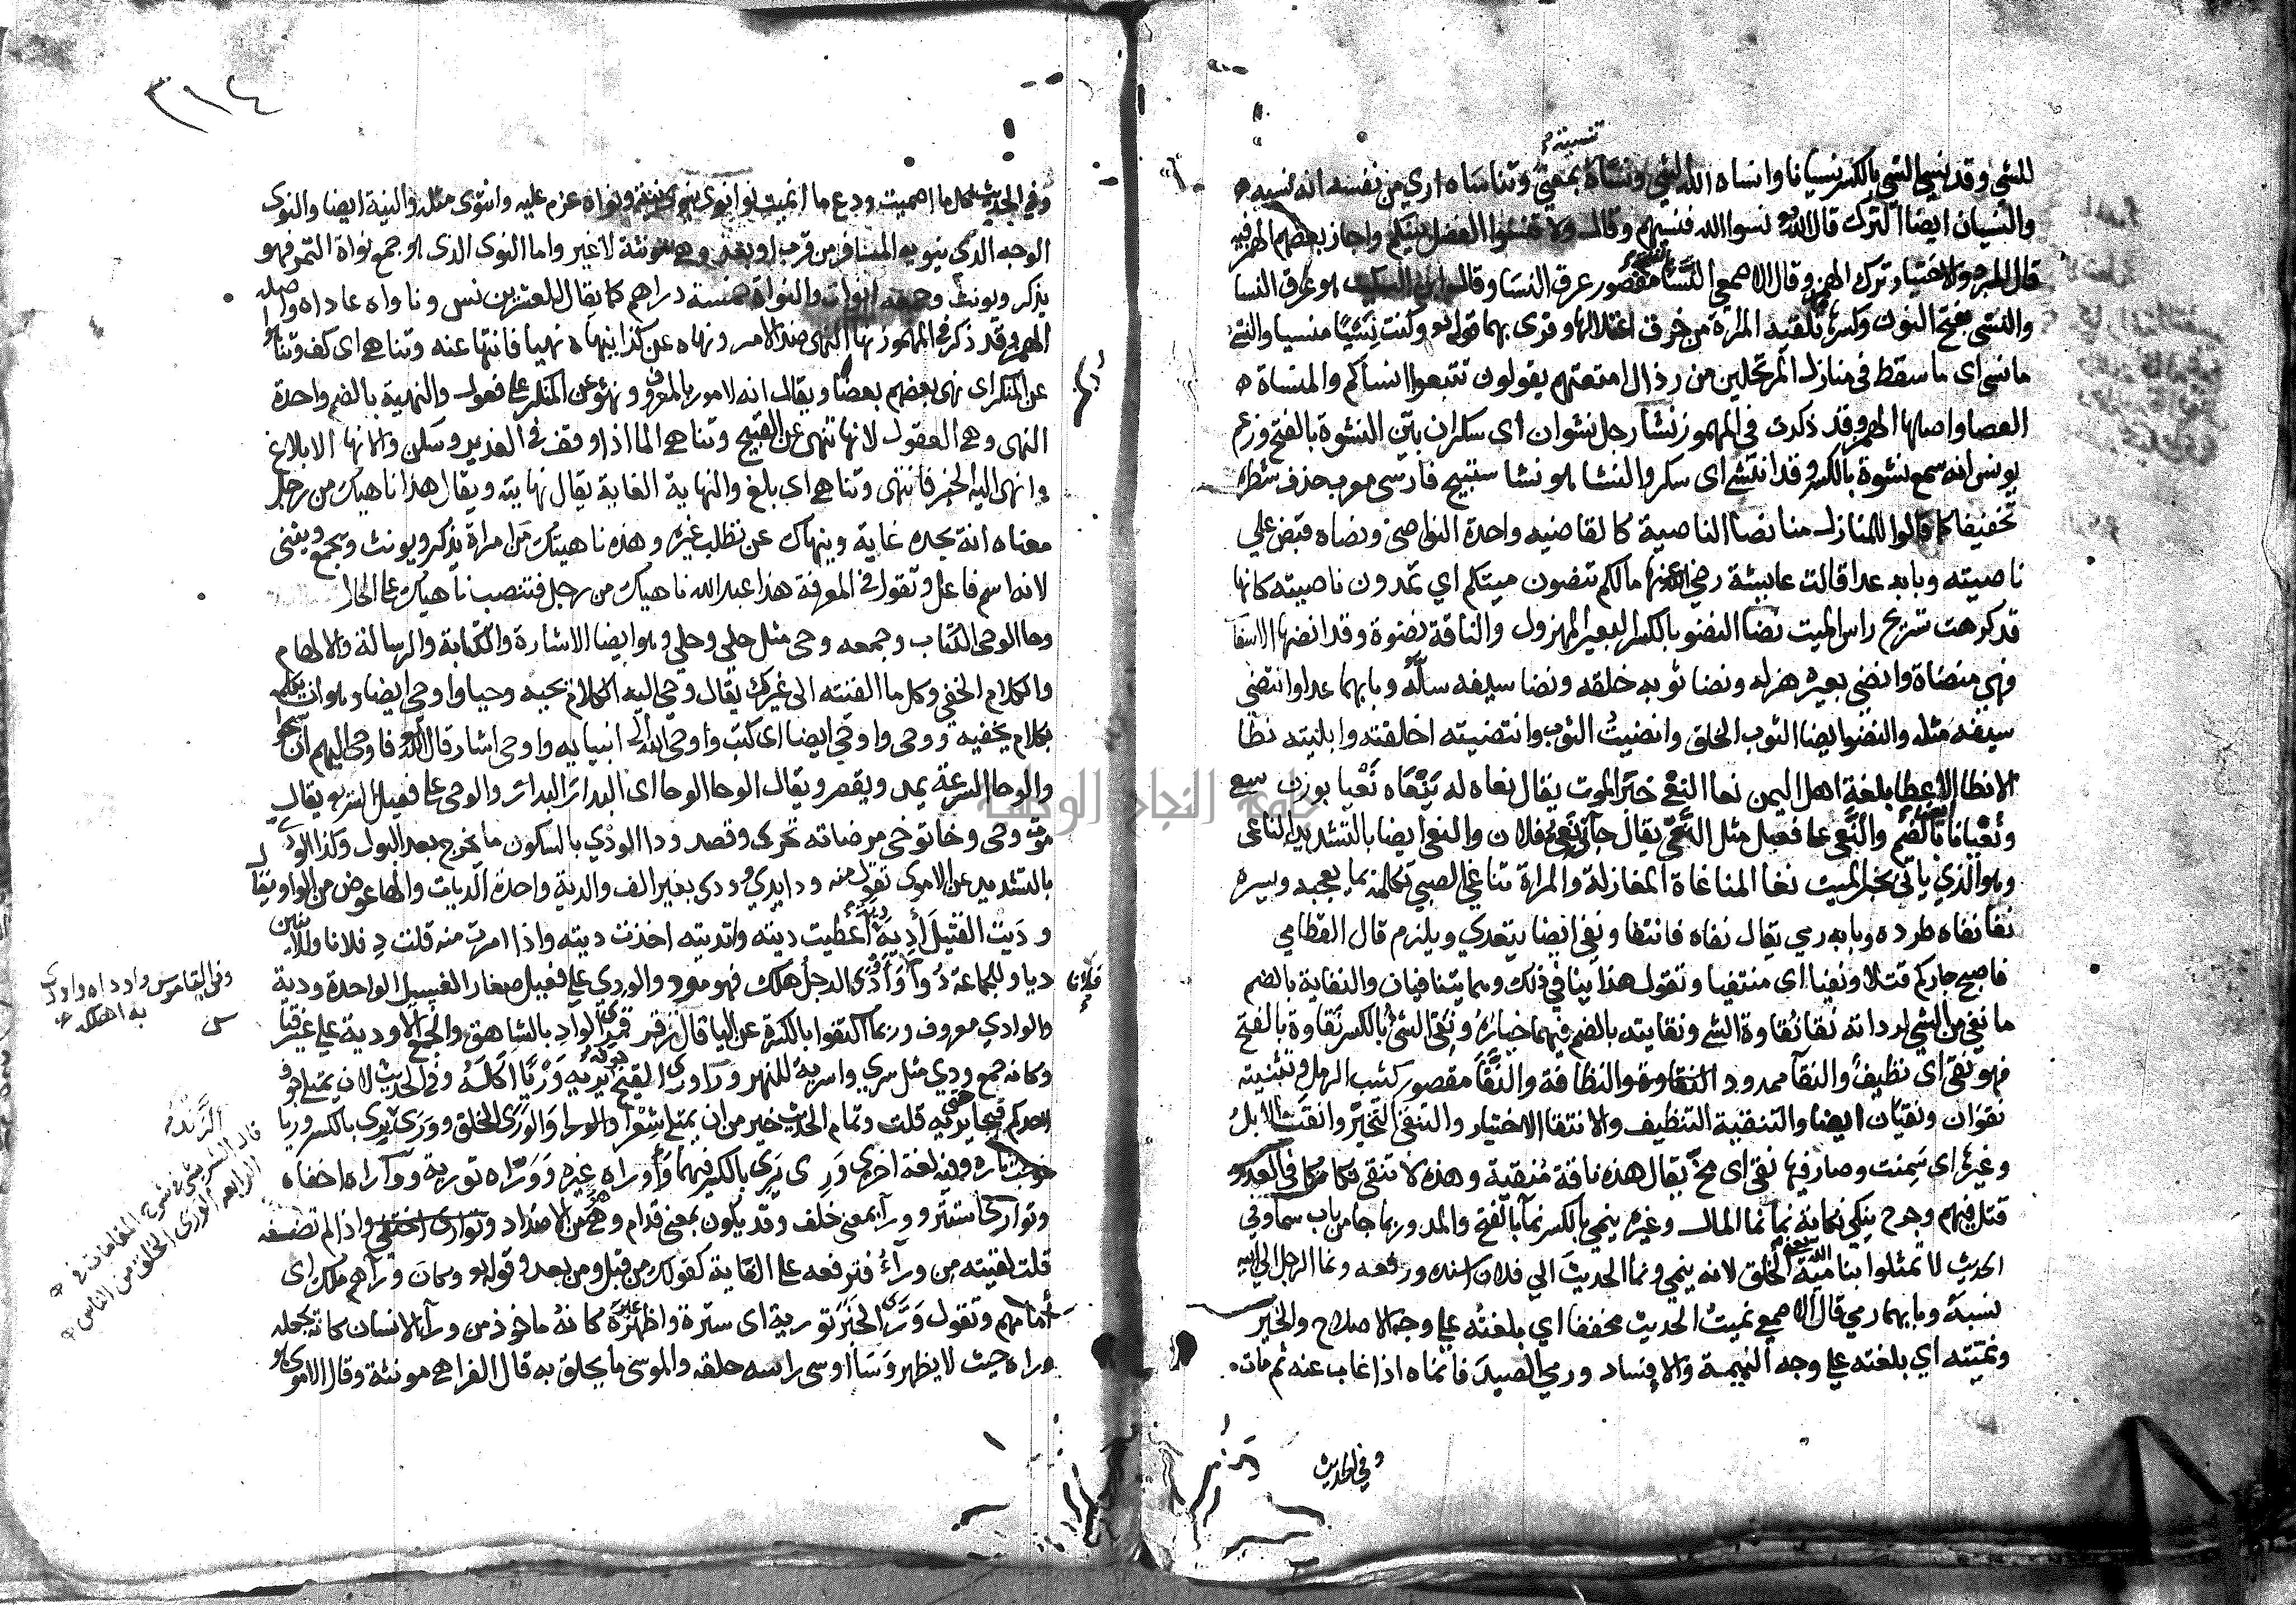 تنسية
للشي وقد نسي الشي بالكسر نسيانا وانساه الله الشي ونساه بمعنى وتناساه اري من نفسه انه نسيه
والنسيان ايضا الترك قال الله نسوا الله فنسيهم وقال ولا تنسوا الفضل بينكم واجاز بعضهم الهمز فيه
قال المبرد والاختيار ترك الهمز وقال الاصمعي النسا مقصور عرق النسا وقال ابن السكيت هو عرق النسا
والنسي بفتح النون وكسرها تلقيه المراة من خرق اعتلالها وقرى بهما قوله وكنت نسيا منسيا والنسي
ما نسي اي ما سقط في منازل المرتحلين من رذال امتعتهم يقولون تتبعوا انساكم والمنساة
العصا واصلها الهمز وقد ذكرت في المهموز نشا رجل نشوان اى سكران بيّن النشوة بالفتح وزعم
يونس انه سمع نشوة بالكسر وقد انتشى اى سكر والنشا هو نشا ستبج فارسي معرب حذف شطره
تخفيفا كما قالوا للمنازل منا نصا الناصية كالقاصيه واحدة النواصي ونصاه قبض علي
ناصيته وبابه عدا قالت عايشة رضي الله عنها مالكم تنصون ميتكم اي تمدون ناصيته كانها
قد كرهت تسريح راس الميت نضا النضو بالكسر البعير المهزول والناقة نضوة وقد انضتها الاسفار
فهي منضاة وانضى بعيره هزله ونضا ثوبه خلعه ونضا سيفه سلّه وبابهما عدا وانتضى
سيفه مثله والنضو ايضا الثوب الخلق وانضيت الثوب وانتضيته اخلقته وابليته نطا
الانطا الاعطا بلغة اهل اليمن نعا النعي خبر الموت يقال نعاه له ينعاه نعيا بوزن سعي
ونعيانا بالضم والنعي على فعيل مثل النعي يقال جا نعي فلان والنعي ايضا بالتشديد الناعى
وهو الذي ياتي بخبر الميت نغا المناغاة المغازلة والمراة تناغي الصبي تكلمه بما يعجبه ويسره
نفا نفاه طرده وبابه رمي يقال نفاه فانتفا ونفي ايضا يتعدي ويلزم قال القطامي
فاصبح جاركم قتلا ونفيا اى منتفيا وتقول هذا ينافي ذلك وهما يتنافيان والنفاية بالضم
ما نفي من الشي لرداته نقا نقاوة الشي ونقايته بالضم فيهما خياره ونقى الشئ بالكسر نقاوة بالفتح
فهو نقى اى نظيف والنقآ ممدود النقاوة والنظافة والنقا مقصور كثيب الرمل وتثنيته
نقوان ونقيان ايضا والتنقية التنظيف والانتقا الاختيار والتنقي التخيّر وانقت الابل
وغيرها اى سمنت وصار فيها نقي اى مخ يقال هذه ناقة منقية وهذه لا تنقي نكا نكا في العدو
قتل فيهم وجرح ينكي نكاية نما نما المال وغيره ينمي بالكسر نمآ بالفتح والمد وربما جا من باب سما وفي
الحديث لا تمثلوا بنامية الله يعنى الخلق لانه ينمي ونما الحديث الي فلان اسنده ورفعه ونما الرجل الي ابيه
نسبه وبابهما رمي قال الاصمعي نميت الحديث مخففا اي بلغته علي وجه الاصلاح والخير
ونمّيته اي بلغته علي وجه النميمة والافساد ورمي الصيد فانماه اذا غاب عنه ثم مات
وفي الحديث
٣١٤
وفي الحديث كل ما اصميت ودع ما انميت نوا نوى ينوى نية ونواة عزم عليه وانتوى مثله والنية ايضا والنوى
الوجه الذي ينويه المسافر من قرب او بعد وهي مونثة لا غير واما النوى الذى هو جمع نواة التمر فهو
يذكر ويونث وجمعه انواء والنواة خمسة دراهم كما يقال للعشرين نس وناواه عاداه واصله
الهمز وقد ذكر في المهموز نها النهي ضد الامر ونهاه عن كذا ينهاه نهيا فانتها عنه وتناهى اى كف وتناهوا
عن المنكر اى نهى بعضهم بعضا ويقال انه لامور بالمعروف ونهو عن المنكر على فعول والنهية بالضم واحدة
النهى وهي العقول لانها تنهى عن القبيح وتناهى الما اذا وقف في الغدير وسكن والانها الابلاغ
وانهى اليه الخبر فانتهى وتناهى اى بلغ والنهاية الغاية يقال نهايته ويقال هذا ناهيك من رجل
معناه انه بجده غاية وينهاك عن تطلب غيره وهذه ناهيتك من امراة يذكر ويونث ويجمع ويثنى
لانه اسم فاعل وتقول في المعرفة هذا عبد الله ناهيك من رجل فتنصب ناهيك على الحال
وحا الوحي الكتاب وجمعه وحي مثل حلي وحلي وهو ايضا الاشارة والكتابة والرسالة والالهام
والكلام الخفي وكل ما القيته الى غيرك يقال وحي اليه الكلام يحيه وحيا واوحى ايضا وهو ان يكلمه
بكلام يخفيه ووحى واوحى ايضا اى كتب واوحى الله الى انبيايه واوحى اشار قال الله فاوحى اليهم ان سبحوا
والوحا السرعة يمد ويقصر ويقال الوحا الوحا اى البدار البدار والوحي على فعيل السريع يقال
موت وحي وخا توخي مرضاته تحرى وقصد ودا الودي بالسكون ما يخرج بعد البول وكذا الودي
بالتشديد عن الاموى تقول منه ودا يدي وودي بغير الف والدية واحدة الديات والها عوض من الواو يقال
ودَيت القتيل أديه دية اعطيت ديته واتديته اخذت ديته واذا امرت منه قلت دِ فلانا وللاثنين
ديا وللجماعة دُوا فلانا وأودى الرجل هلك فهو مود والودي على فعيل صغار الفسيل الواحدة ودية
والوادي معروف وربما اكتفوا بالكسرة عن اليا قال قرقر قمر الواد بالشاهق والجمع الاودية علي غير قياس
وكانه جمع ودي مثل سري واسرية للنهر ورا ورى القيح جوفه يريه وريا اكله وفي الحديث لان يمتلى جوف
احدكم قيحا حتى يريه قلت وتمام الحديث خير من ان يمتلى شعرا والورا والورى الخلق وورى يرى بالكسر وريا
خرجت ناره وفيه لغة اخرى وري يري بالكسر فيهما وأوراه غيره وورّاه تورية وواراه اخفاه
وتوارى استتر وورآ بمعنى خلف وقد يكون بمعنى قدام وهي من الاضداد وتوارى اختفى واذا لم تضفه
قلت لقيته من ورآءُ فترفعه على الغاية كقولك من قبل ومن بعد وقوله وكان ورآهم ملك اى
أمامهم وتقول ورّى الخبر تورية اى ستره واظهر غيره كانه ماخوذ من ورآ الانسان كانه يجعله
وراه حيث لا يظهر وسا اوسى راسه حلقه والموسى ما يحلق به قال الفرا هي مونثة وقال الاموى هو
وفى القاموس واوداه واودى
به اهلكه
قال الشريشي في شرح المقامات في
الرابعه الورى الخلق من الناس